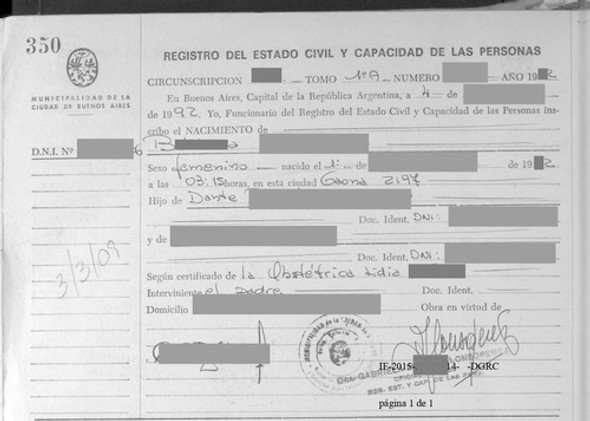 350
MUNICIPALIDAD DE LA
CIUDAD DE BUENOS AIRES
REGISTRO DEL ESTADO CIVIL Y CAPACIDAD DE LAS PERSONAS
CIRCUNSCRIPCION TOMO 1ºA NUMERO AÑO 19 2
En Buenos Aires, Capital de la República Argentina, a 4 de
de 1992. Yo, Funcionario del Registro del Estado Civil y Capacidad de las Personas ins-
cribo el NACIMIENTO de
D.N.I. Nº
B
Sexo femenino nacido el 1: de de 19 2
a las 03:15 horas, en esta ciudad Gaona 2197
Hijo de Dante
Doc. Ident. DNI:
y de
Doc. Ident. DNI:
3/3/09
Según certificado de la Obstétrica Lidia
Interviniente el padre Doc. Ident.
Domicilio Obra en virtud de
MUNICIPALIDAD de la CIUDAD
DRA. GABRIEL
IF-2015- 14- -DGRC
REG. EST. Y CAP. DE LAS PER
página 1 de 1